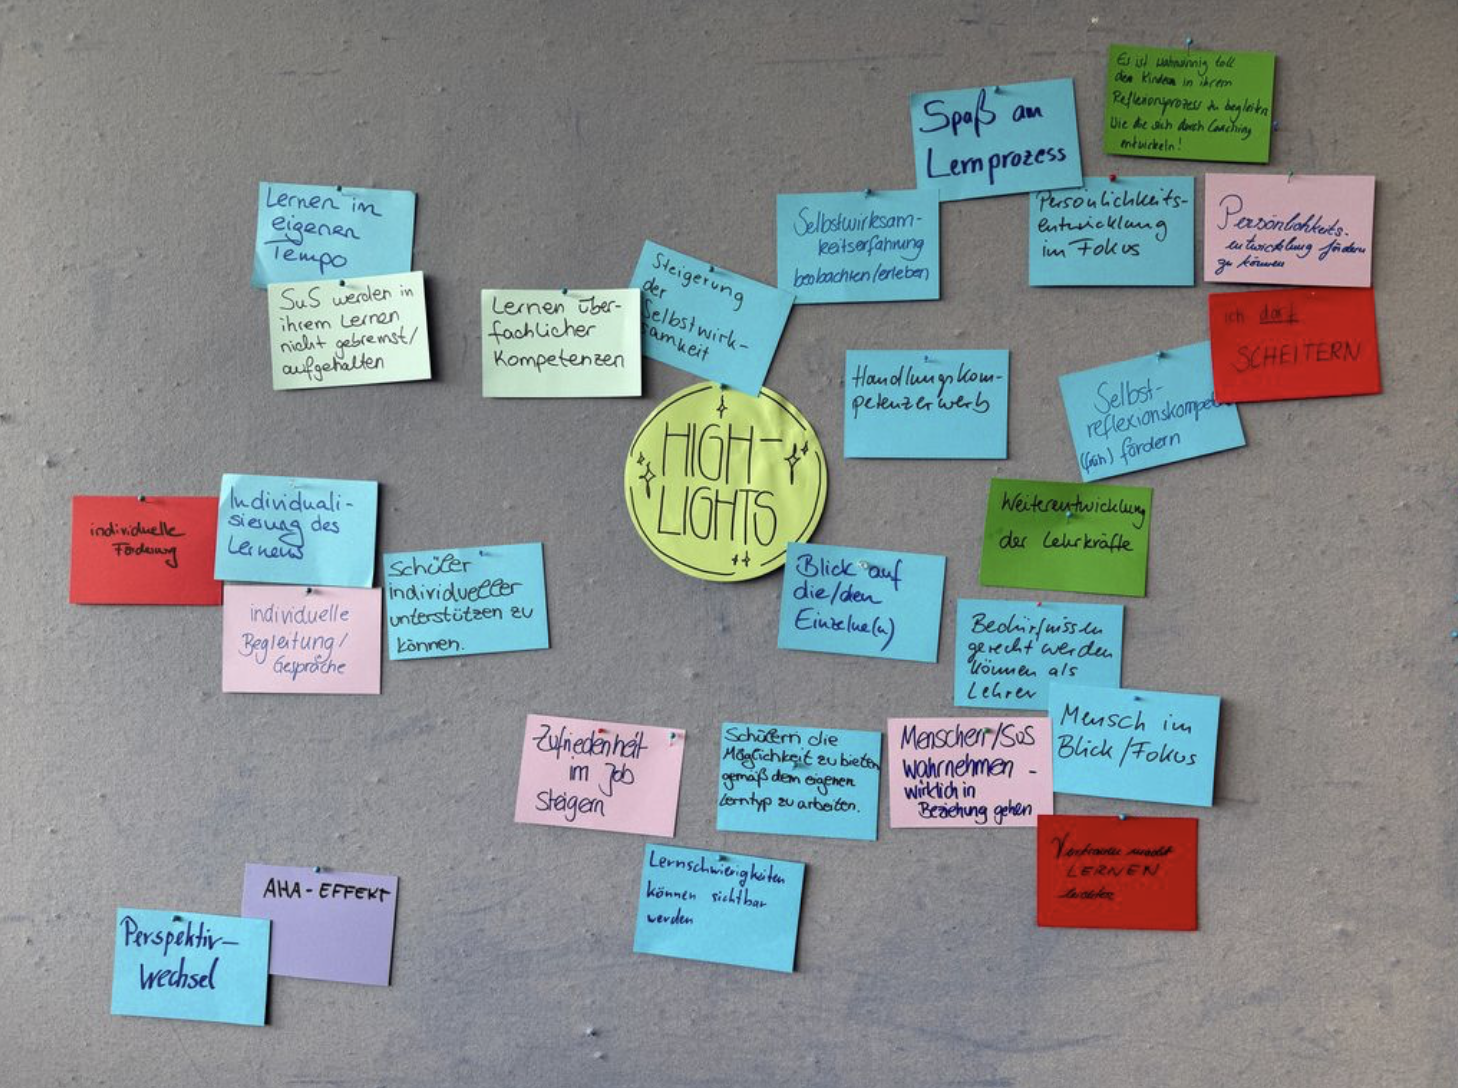 Es ist wahnsinnig toll
den Kindern in ihrem
Reflexionsprozess zu begleiten
Wie die sich durch Coaching
entwickeln!
Spaß am
Lernprozess
Persönlichkeits-
entwicklung
im Fokus
Persönlichkeits-
entwicklung fördern
zu können
Lernen im
eigenen
Tempo
Selbstwirksam-
keitserfahrung
beobachten/erleben
Steigerung
der
Selbstwirk-
samkeit
SuS werden in
ihrem Lernen
nicht gebremst/
aufgehalten
Lernen über-
fachlicher
Kompetenzen
ich darf
SCHEITERN
Handlungskom-
petenzerwerb
Selbst-
reflexionskompet
(früh) fördern
HIGH-
LIGHTS
individuelle
Förderung
Individuali-
sierung des
Lernens
Weiterentwicklung
der Lehrkräfte
Schüler
individueller
unterstützen zu
können.
Blick auf
die/den
Einzelne(n)
individuelle
Begleitung/
Gespräche
Bedürfnissen
gerecht werden
können als
Lehrer
Mensch im
Blick/Fokus
Zufriedenheit
im Job
steigern
Schülern die
Möglichkeit zu bieten
gemäß dem eigenen
Lerntyp zu arbeiten.
Menschen/SuS
wahrnehmen -
wirklich in
Beziehung gehen
Vertrauen macht
LERNEN
leichter
Lernschwierigkeiten
können sichtbar
werden
AHA-EFFEKT
Perspektiv-
wechsel